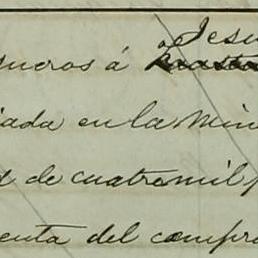 Jesu
queros á
iada en la Min
de cuatro mil p
enta del compra